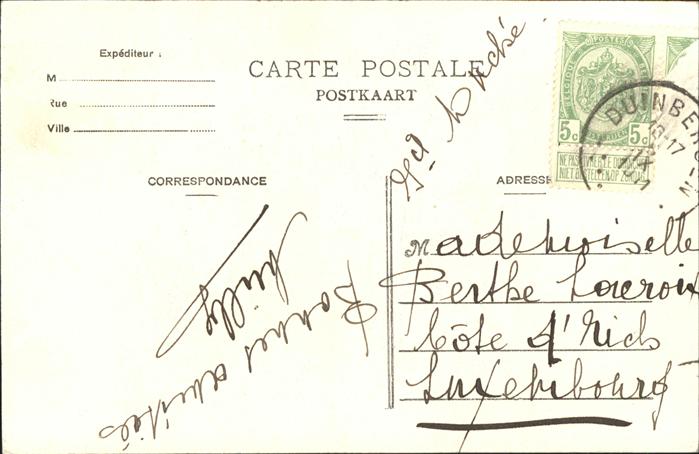 Expéditeur :
M
Rue
Ville
CARTE POSTALE
POSTKAART
CORRESPONDANCE
ADRESSE
BELGIQUE
POSTES
5c 5c
NE PAS LIVRER LE DIMANCHE
NIET BESTELLEN OP ZONDAG
DUINBER
Gd Duché.
Mademoiselle
Berthe Lacroix
Côte d'Eich
Luxembourg
Bonnes amitiés
Milly